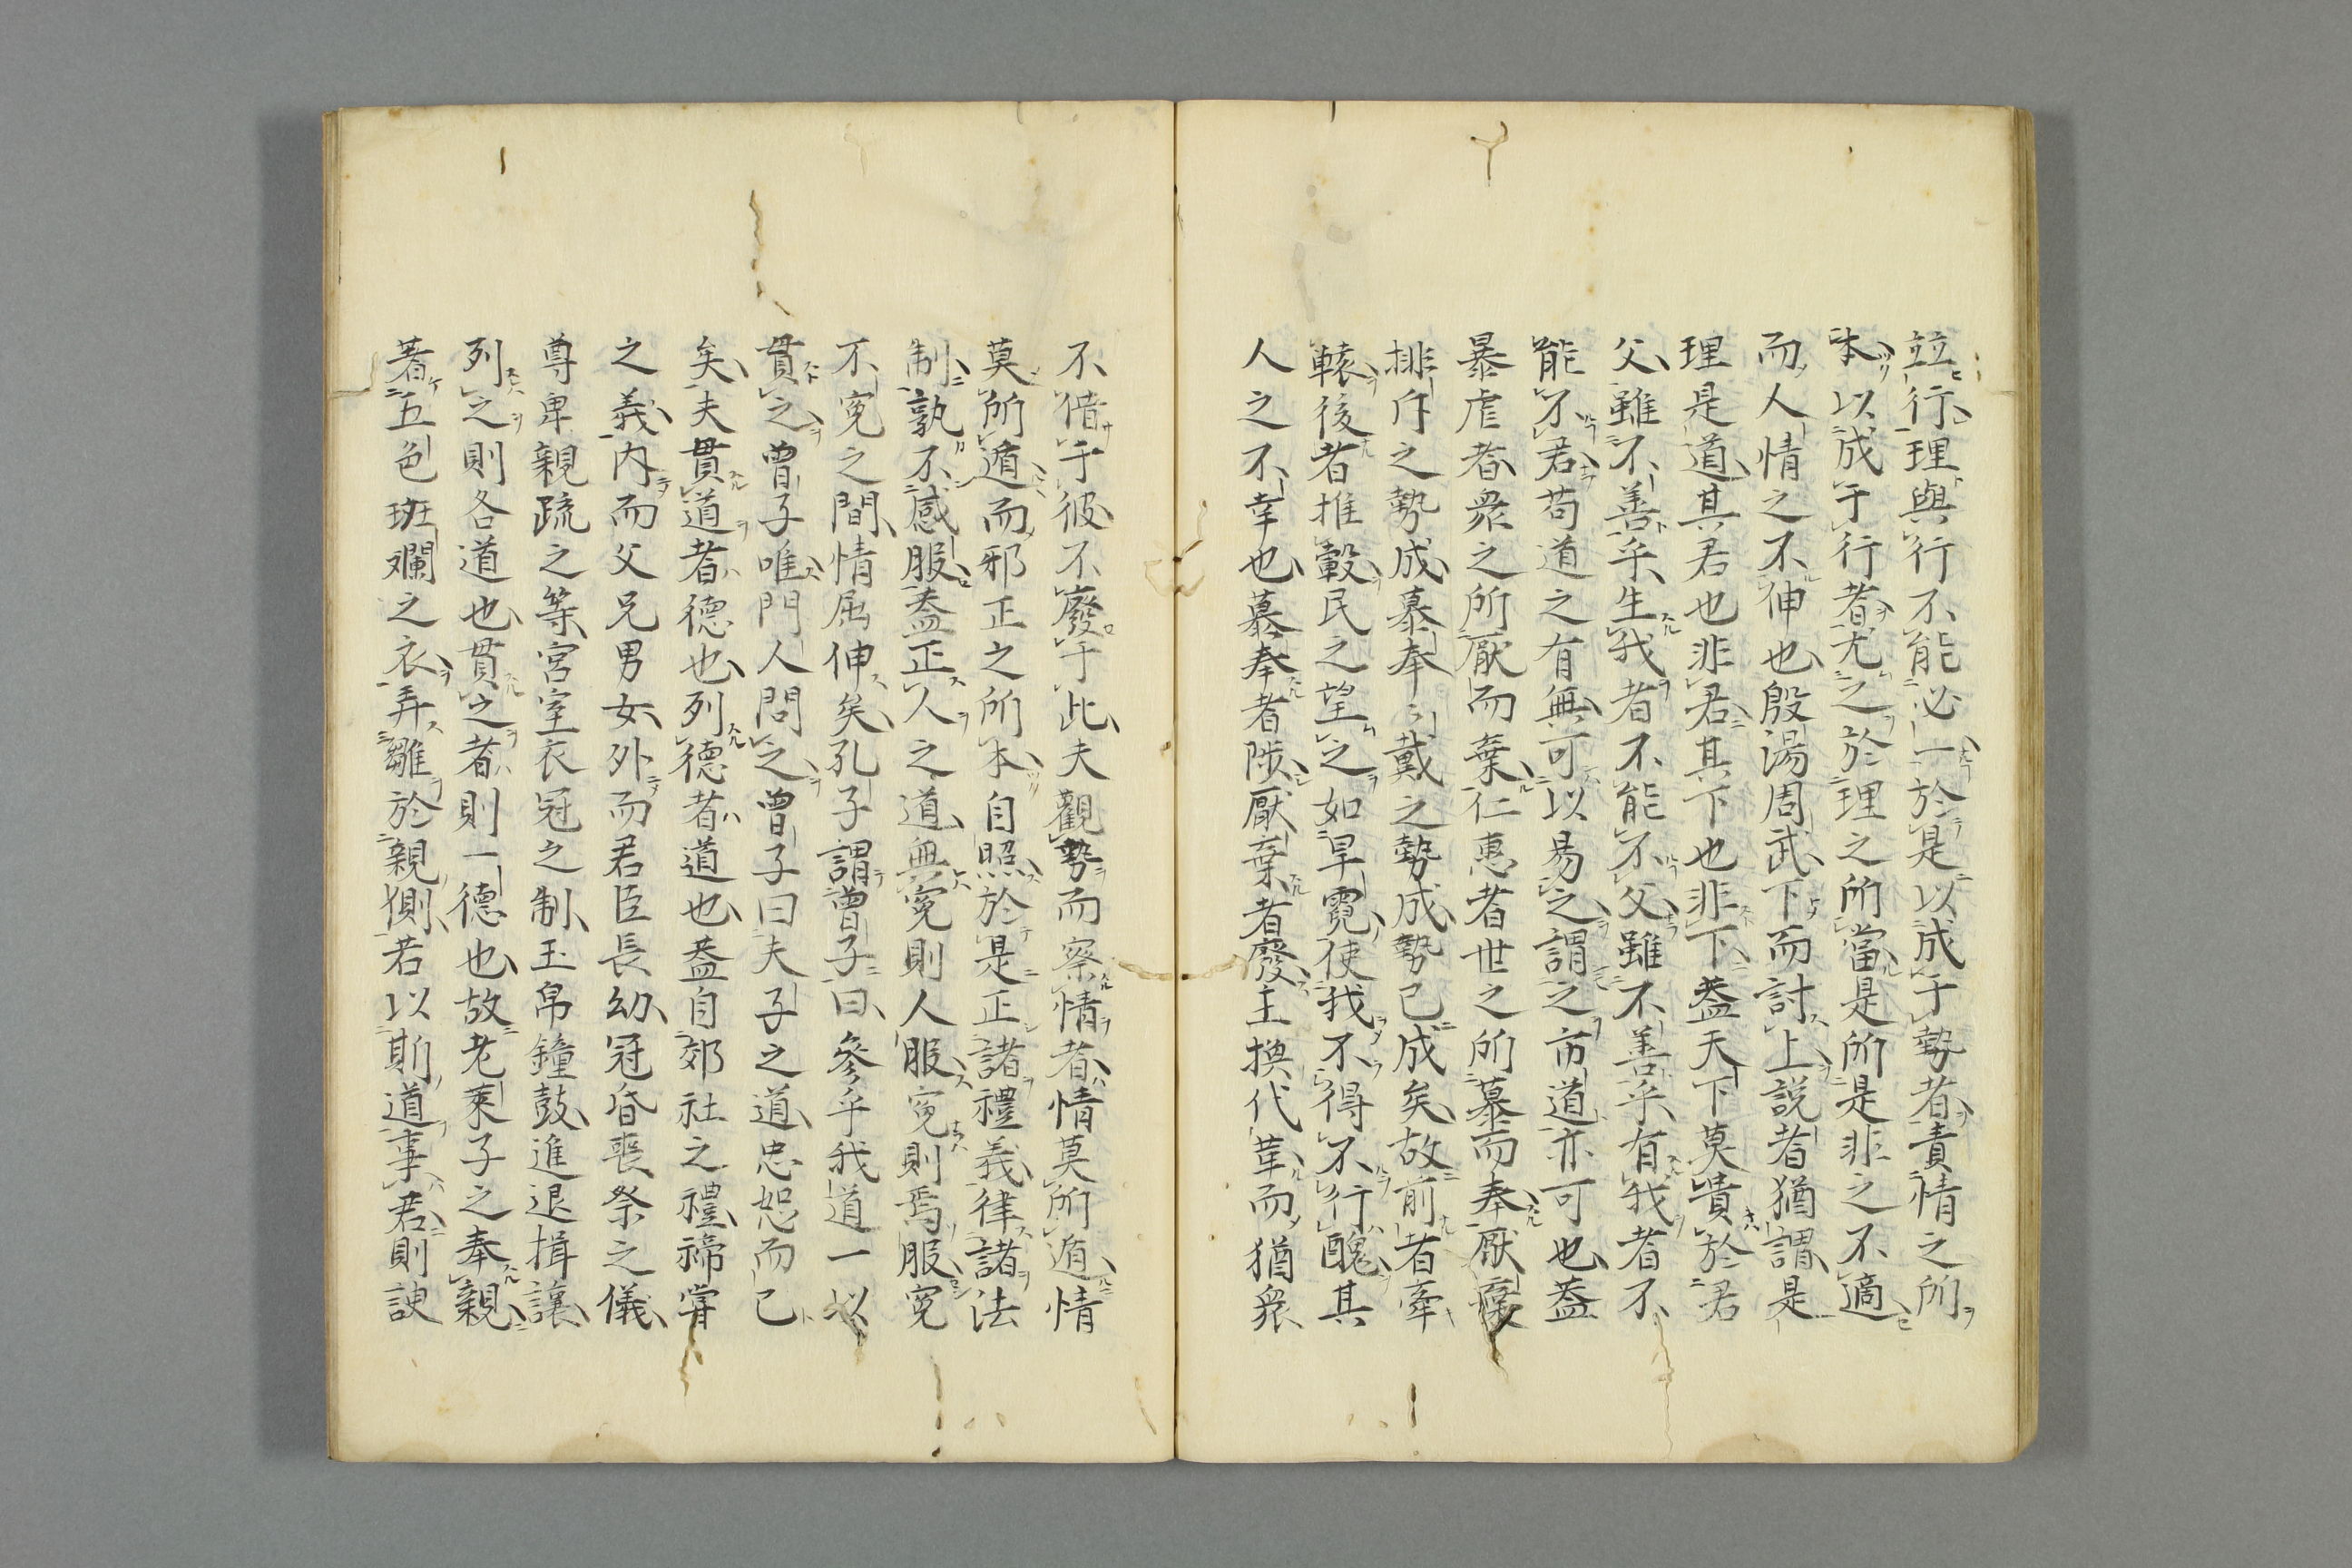 竝行理與行不能必一於是以成于勢者責情之所
本以成于行者尤之於理之所當是所是非之不適
而人情之不伸也殷湯周武下而討上説者猶謂是
理是道其君也非君其下也非下蓋天下莫貴於君
父雖不善乎生我者不能不父雖不善乎有我者不
能不君苟道之有無可以易之謂之市道亦可也蓋
暴虐者衆之所厭而棄仁惠者世之所慕而奉厭棄
排斥之勢成慕奉〻戴之勢成勢已成矣故前者牽
轅後者推轂民之望之如旱霓使我不得不行醜其
人之不幸也慕奉者陟厭棄者廢主換代革而猶衆
不借于彼不廢于此夫觀勢而察情者情莫所遁情
莫所遁而邪正之所本自照於是正諸禮義律諸法
制孰不感服蓋正人之道無冤則人服冤則焉服冤
不冤之間情屈伸矣孔子謂曾子曰參乎我道一以
貫之曾子唯門人問之曾子曰夫子之道忠恕而已
矣夫貫道者德也列德者道也蓋自郊社之禮禘嘗
之義内而父兄男女外而君臣長幼冠昏喪祭之儀
尊卑親疏之等宮室衣冠之制玉帛鐘鼓進退揖讓
列之則各道也貫之者則一德也故老萊子之奉親
著五色斑斕之衣弄雛於親側若以斯道事君則諛